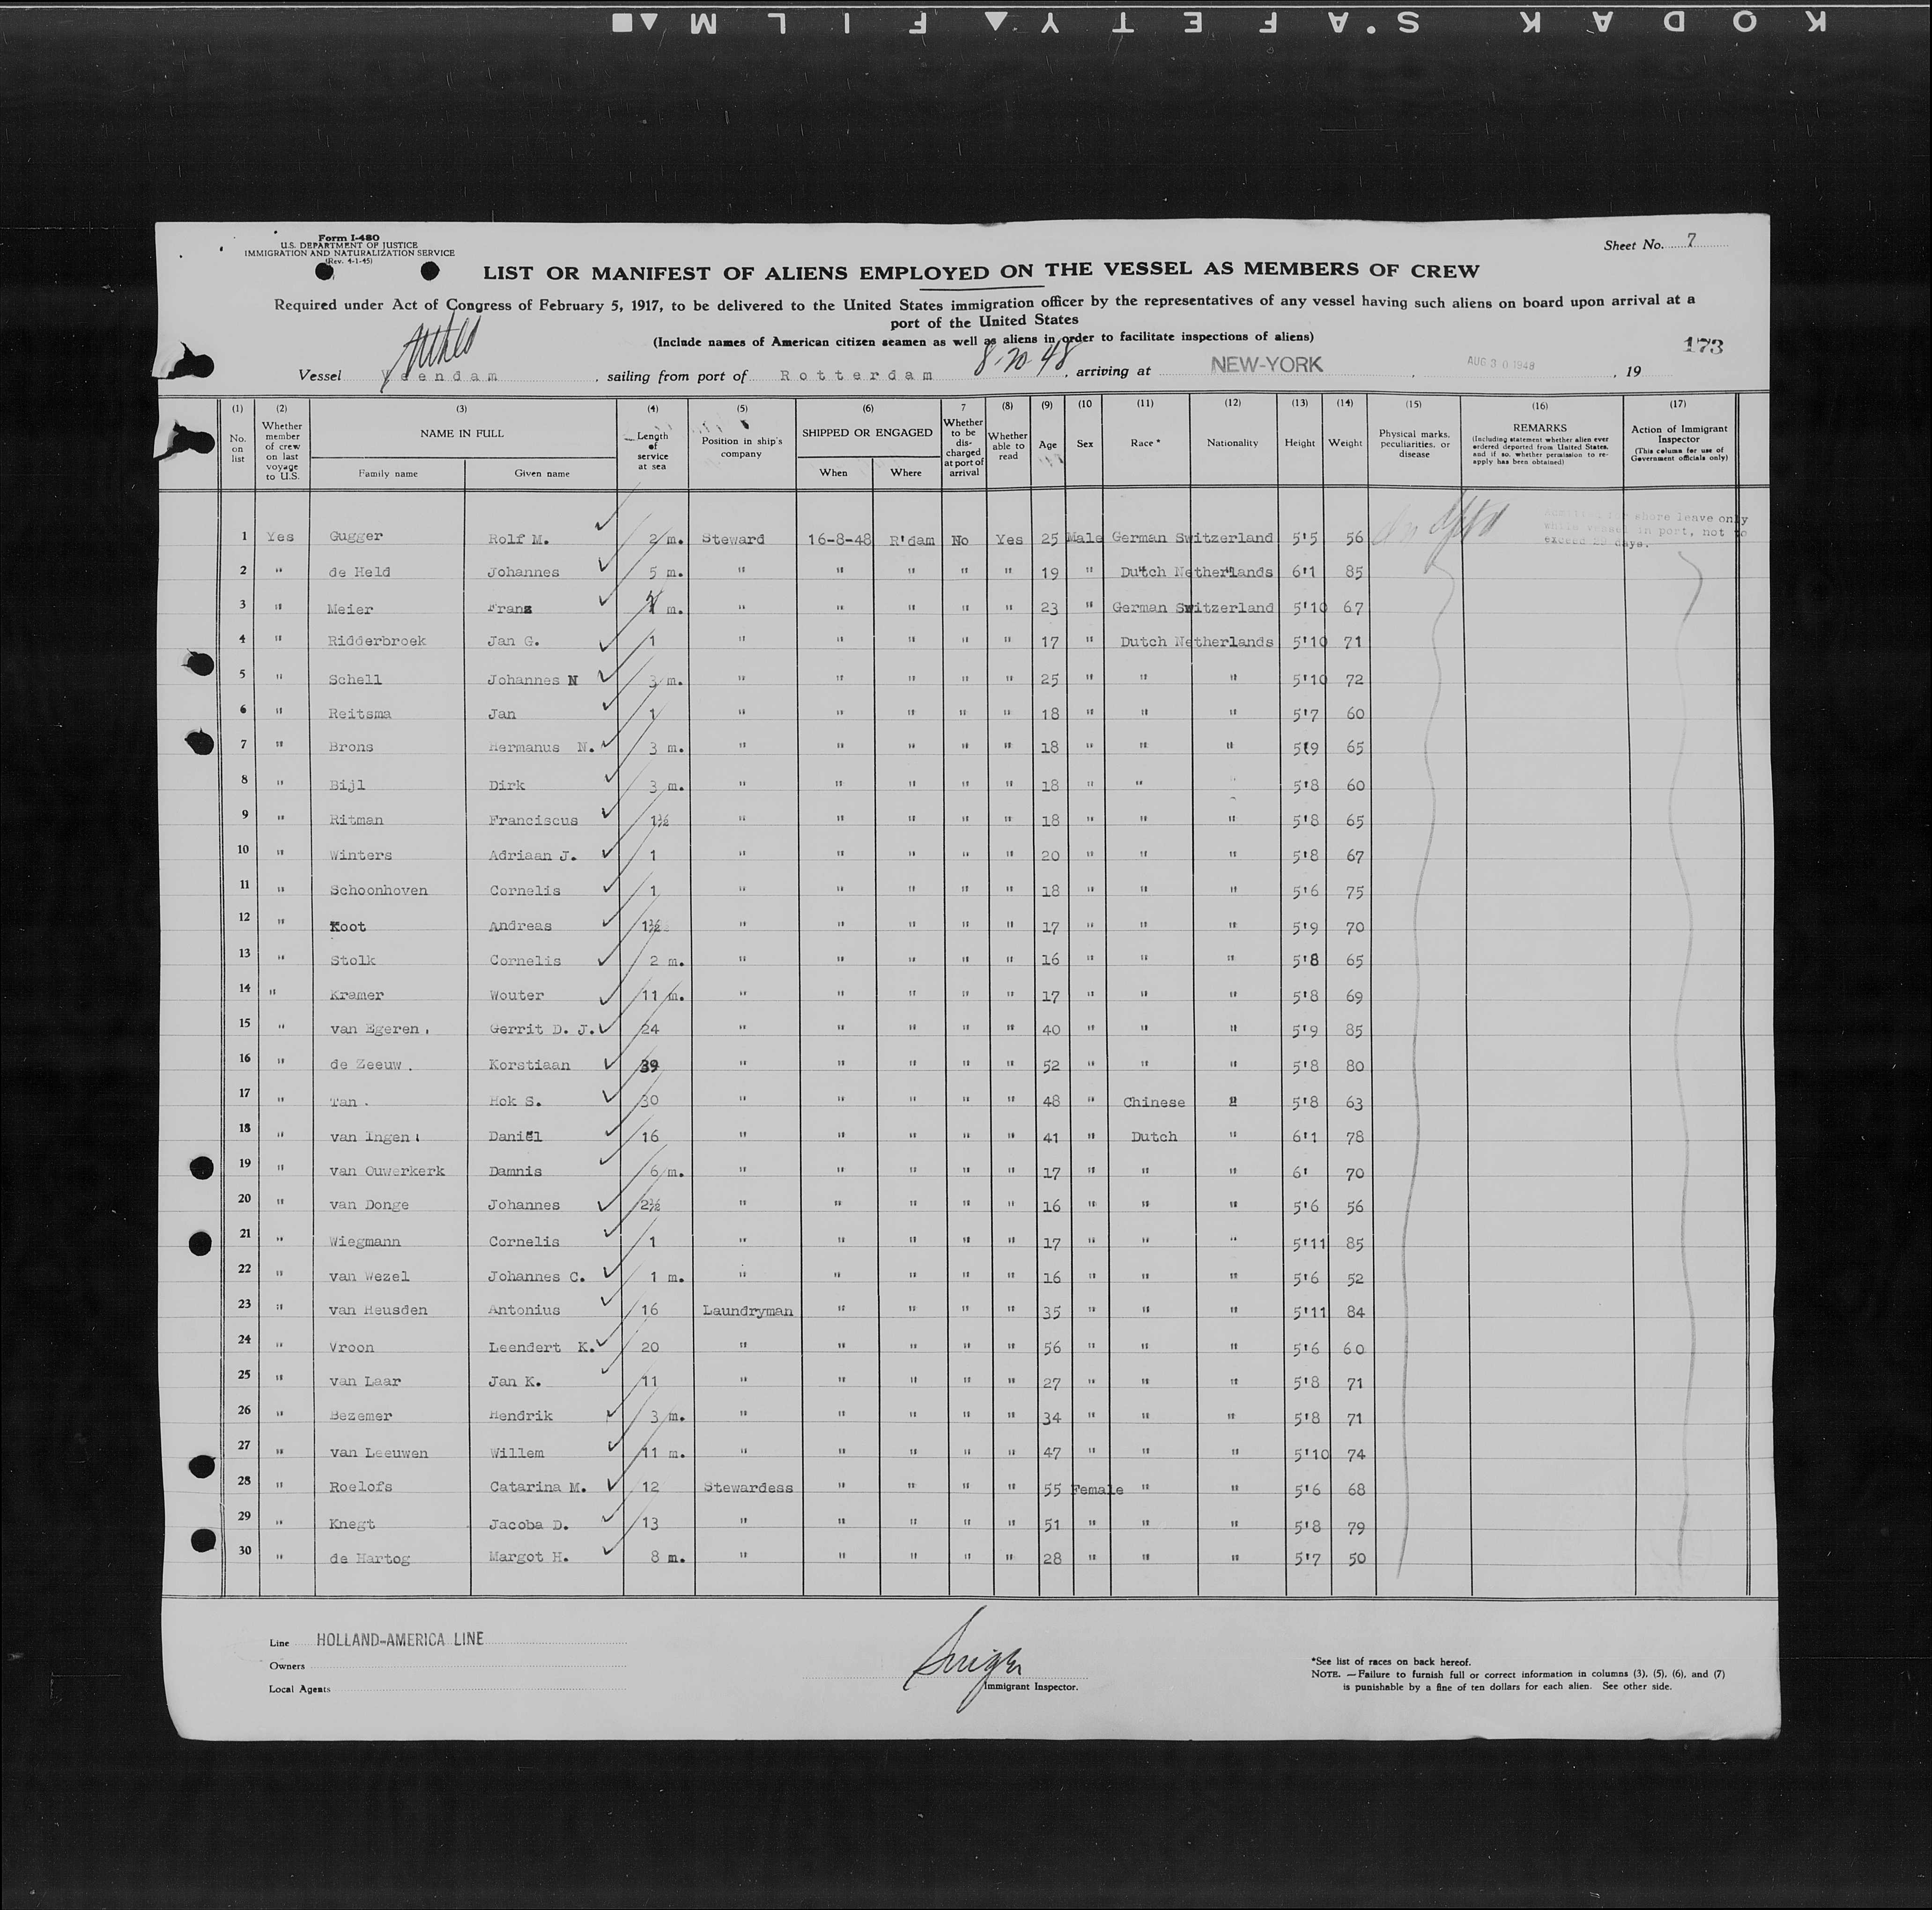 KODAK SAFETY FILM
Form I-480
U.S. DEPARTMENT OF JUSTICE
IMMIGRATION AND NATURALIZATION SERVICE
(Rev. 4-1-45)
Sheet No. 7
LIST OR MANIFEST OF ALIENS EMPLOYED ON THE VESSEL AS MEMBERS OF CREW
Required under Act of Congress of February 5, 1917, to be delivered to the United States immigration officer by the representatives of any vessel having such aliens on board upon arrival at a
port of the United States
(Include names of American citizen seamen as well as aliens in order to facilitate inspections of aliens)
173
Vessel Veendam, sailing from port of Rotterdam 8-20-48, arriving at NEW-YORK, AUG 30 1948, 19
(1) No. on list (2) Whether member of crew on last voyage to U.S. (3) NAME IN FULL Family name Given name (4) Length of service at sea (5) Position in ship's company (6) SHIPPED OR ENGAGED When Where 7 Whether to be discharged at port of arrival (8) Whether able to read (9) Age (10 Sex (11) Race * (12) Nationality (13) Height (14) Weight (15) Physical marks, peculiarities, or disease (16) REMARKS (Including statement whether alien ever ordered deported from United States, and if so, whether permission to re-apply has been obtained) (17) Action of Immigrant Inspector (This column for use of Government officials only)
Admitted for shore leave only
while vessel in port, not to
exceed 29 days.
1 Yes Gugger Rolf M. 2 m. Steward 16-8-48 R'dam No Yes 25 Male German Switzerland 5'5 56
2 " de Held Johannes 5 m. " " " " " 19 " Dutch Netherlands 6'1 85
3 " Meier Franz m. " " " " " 23 " German Switzerland 5'10 67
4 " Ridderbroek Jan G. 1 " " " " " 17 " Dutch Netherlands 5'10 71
5 " Schell Johannes N 3 m. " " " " " 25 " " " 5'10 72
6 " Reitsma Jan 1 " " " " " 18 " " " 5'7 60
7 " Brons Hermanus N. 3 m. " " " " " 18 " " " 5'9 65
8 " Bijl Dirk 3 m. " " " " " 18 " " " 5'8 60
9 " Ritman Franciscus 1½ " " " " " 18 " " " 5'8 65
10 " Winters Adriaan J. 1 " " " " " 20 " " " 5'8 67
11 " Schoonhoven Cornelis 1 " " " " " 18 " " " 5'6 75
12 " Koot Andreas 1½ " " " " " 17 " " " 5'9 70
13 " Stolk Cornelis 2 m. " " " " " 16 " " " 5'8 65
14 " Kramer Wouter 11 m. " " " " " 17 " " " 5'8 69
15 " van Egeren. Gerrit D. J. 24 " " " " " 40 " " " 5'9 85
16 " de Zeeuw. Korstiaan 39 " " " " " 52 " " " 5'8 80
17 " Tan. Hok S. 30 " " " " " 48 " Chinese " 5'8 63
18 " van Ingen Daniël 16 " " " " " 41 " Dutch " 6'1 78
19 " van Ouwerkerk Damnis 6 m. " " " " " 17 " " " 6' 70
20 " van Donge Johannes 2½ " " " " " 16 " " " 5'6 56
21 " Wiegmann Cornelis 1 " " " " " 17 " " " 5'11 85
22 " van Wezel Johannes C. 1 m. " " " " " 16 " " " 5'6 52
23 " van Heusden Antonius 16 Laundryman " " " " 35 " " " 5'11 84
24 " Vroon Leendert K. 20 " " " " " 56 " " " 5'6 60
25 " van Laar Jan K. 11 " " " " " 27 " " " 5'8 71
26 " Bezemer Hendrik 3 m. " " " " " 34 " " " 5'8 71
27 " van Leeuwen Willem 11 m. " " " " " 47 " " " 5'10 74
28 " Roelofs Catarina M. 12 Stewardess " " " " 55 Female " " 5'6 68
29 " Knegt Jacoba D. 13 " " " " " 51 " " " 5'8 79
30 " de Hartog Margot H. 8 m. " " " " " 28 " " " 5'7 50
Line HOLLAND-AMERICA LINE
Owners
Local Agents
Immigrant Inspector.
*See list of races on back hereof.
NOTE. — Failure to furnish full or correct information in columns (3), (5), (6), and (7)
is punishable by a fine of ten dollars for each alien. See other side.